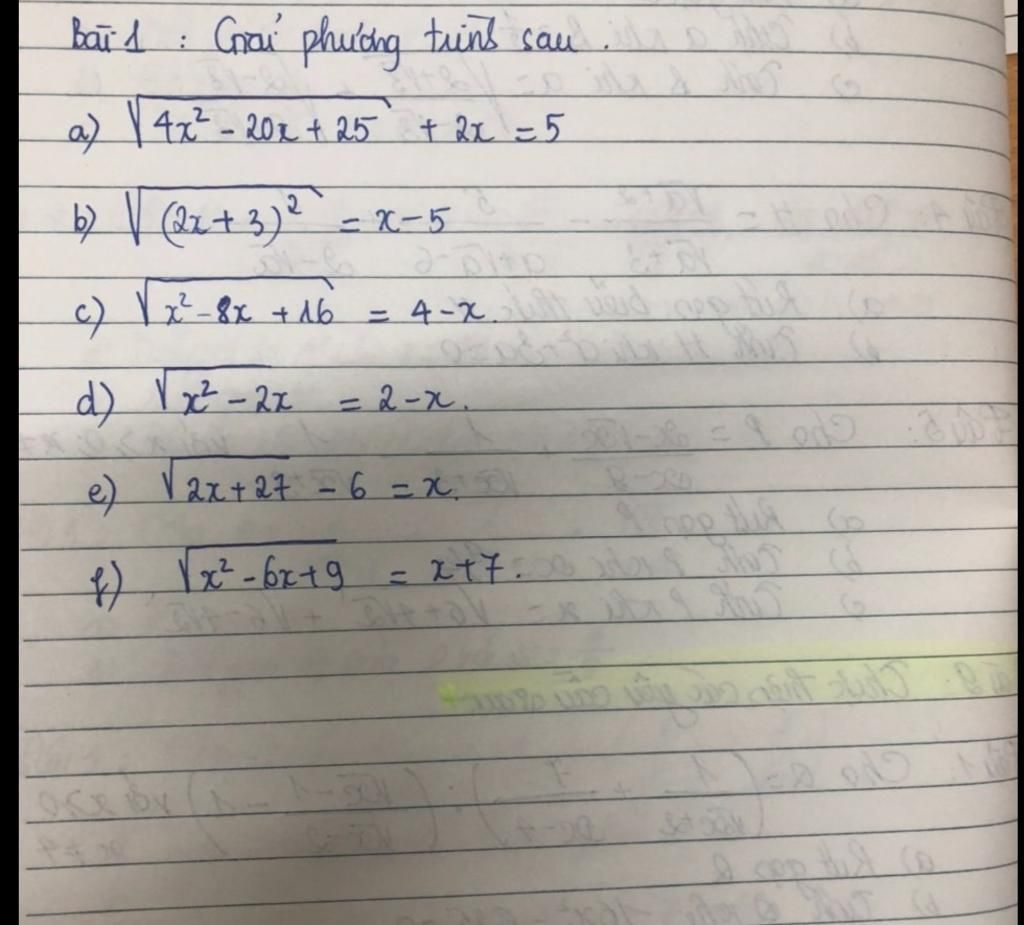 Bài 1 : Giải phương trình sau.
a) √(4x² - 20x + 25) + 2x = 5
b) √((2x+3)²) = x - 5
c) √(x² - 8x + 16) = 4 - x.
d) √(x² - 2x) = 2 - x.
e) √(2x + 27) - 6 = x.
f) √(x² - 6x + 9) = x + 7.